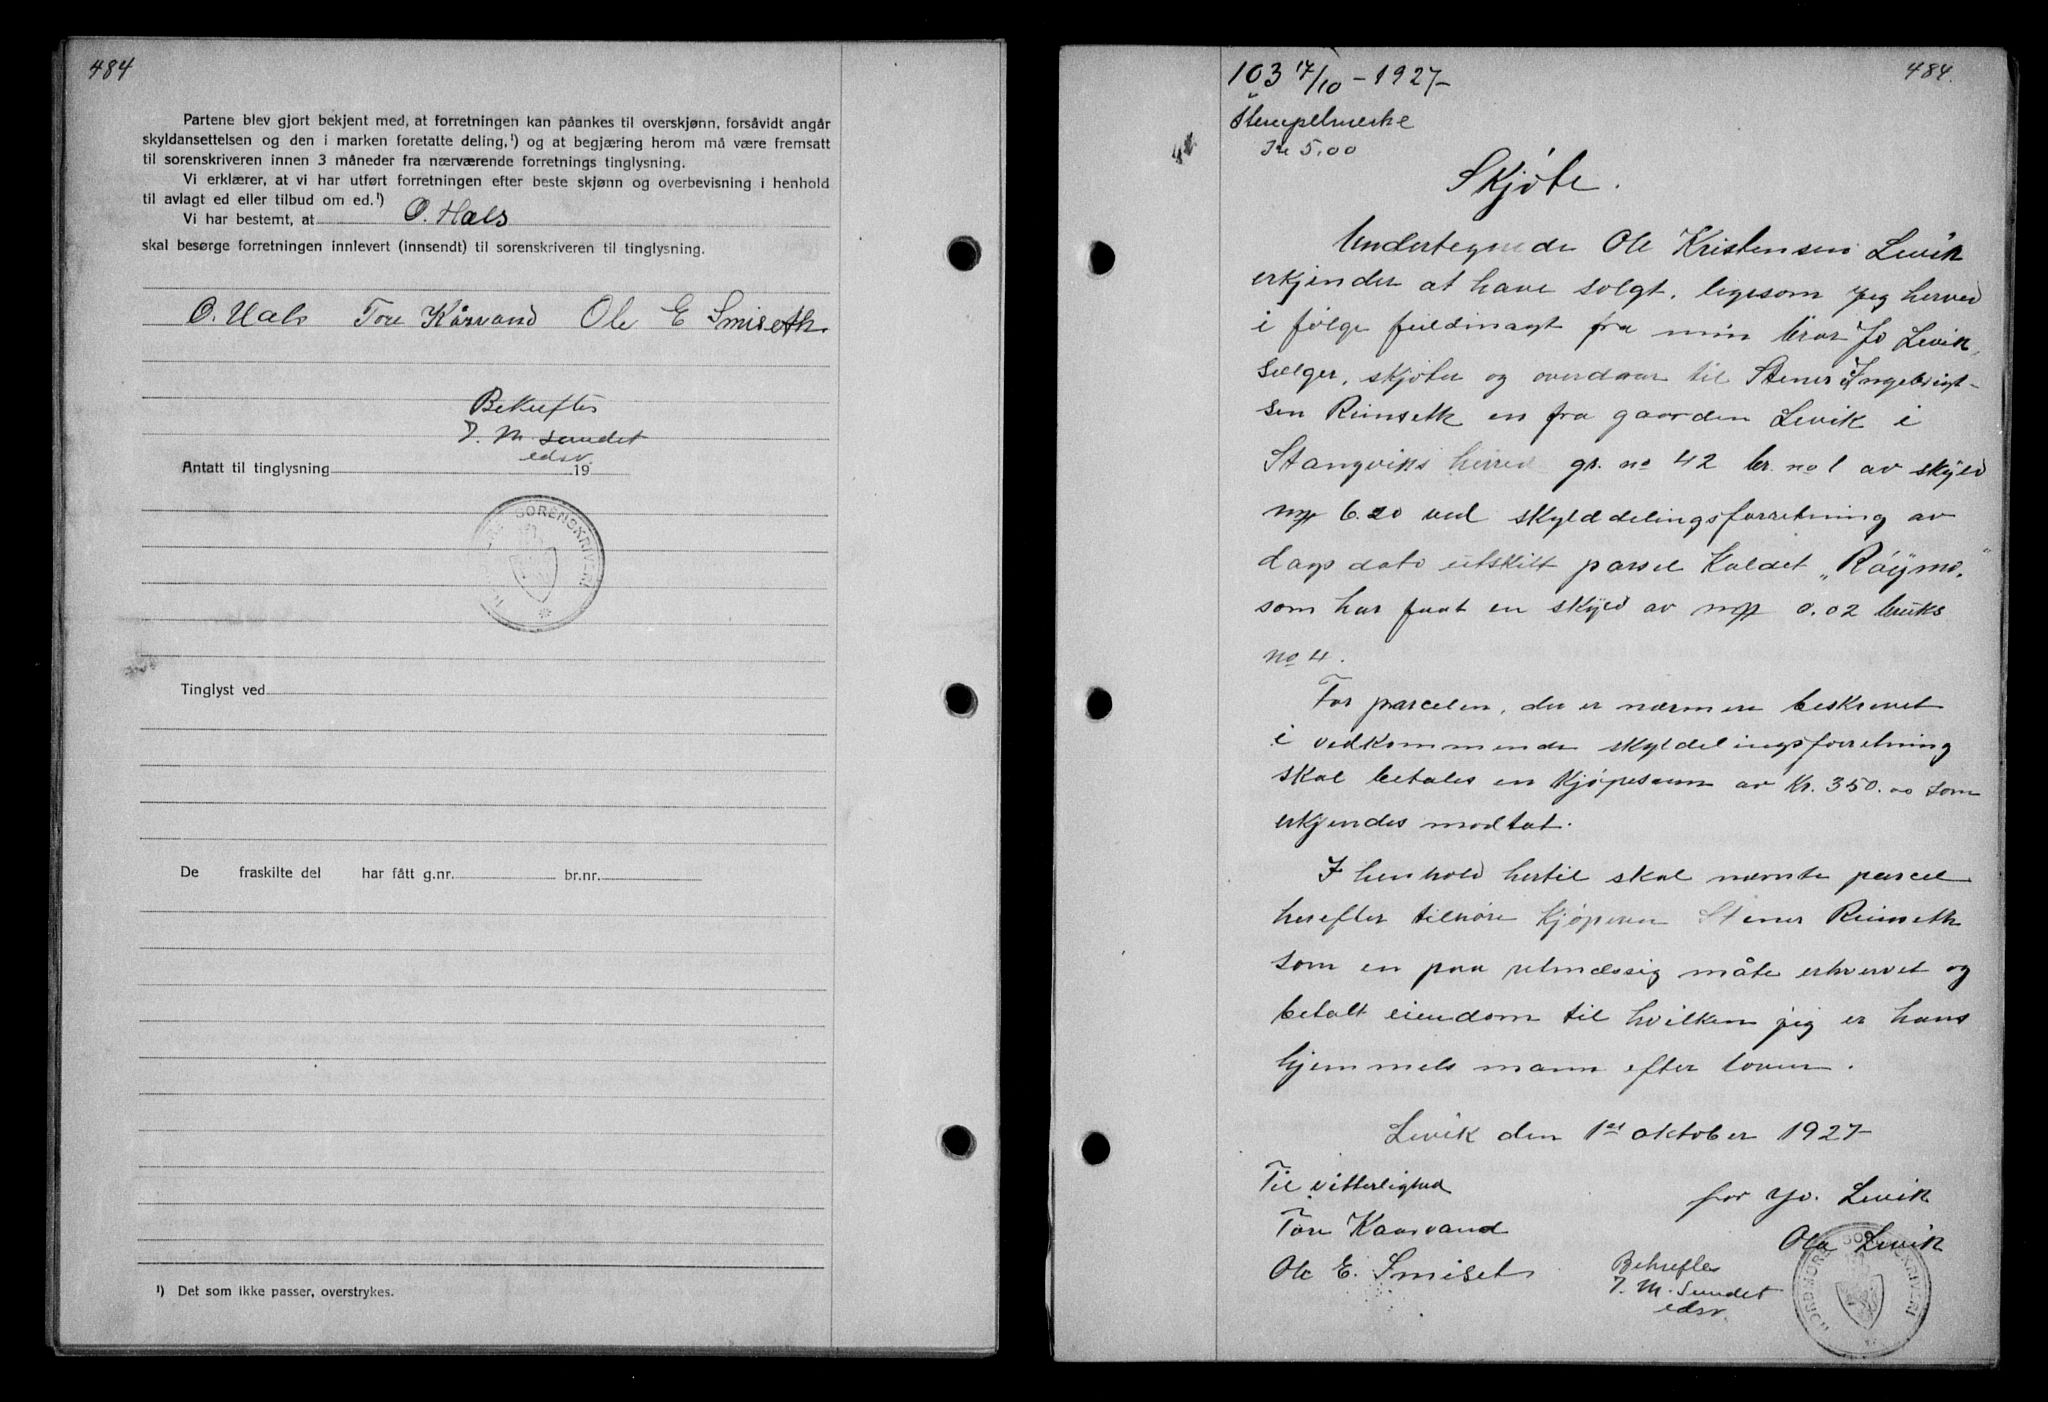 484
Partene blev gjort bekjent med, at forretningen kan påankes til overskjønn, forsåvidt angår
skyldansettelsen og den i marken foretatte deling,¹) og at begjæring herom må være fremsatt
til sorenskriveren innen 3 måneder fra nærværende forretnings tinglysning.
Vi erklærer, at vi har utført forretningen efter beste skjønn og overbevisning i henhold
til avlagt ed eller tilbud om ed.¹)
Vi har bestemt, at O. Hals
skal besørge forretningen innlevert (innsendt) til sorenskriveren til tinglysning.
O. Hals Tore Kårvand Ole E Smiseth
Bekreftes
J. M. Sundet
edsv.
Antatt til tinglysning 19
SORENSKRIVERI
Tinglyst ved
De fraskilte del har fått g.nr. br.nr.
¹) Det som ikke passer, overstrykes.
103 17/10 - 1927 484.
Stempelmerke
Kr 5,00
Skjøte.
Undertegnede Ole Kristensen Levik
erkjender at have solgt, ligesom jeg herved
i følge fuldmagt fra min bror Jo Levik,
sælger, skjøter og overdrar til Stener Ingebrigt-
sen Rimseth en fra gaarden Levik i
Stangviks herred gr. no 42 br. no 1 av skyld
mrk 6.20 ved skylddelingsforretning av
dags dato utskilt parsel kaldet „Røymo"
som har faat en skyld av mrk 0.02 bruks
no 4.
For parcelen, der er nærmere beskrevet
i vedkommende skyldelingsforretning
skal betales en kjøpesum av kr. 350.00 som
erkjendes modtat.
I henhold hertil skal nævnte parcel
herefter tilhøre kjøperen Stener Rimseth
som en paa retmæssig måte erhvervet og
betalt eiendom til hvilken jeg er hans
hjemmels mann efter loven.
Levik den 1st oktober 1927
Til vitterlighed
for Jo. Levik
Tore Kaarvand
Ole Levik
Ole E. Smiset
Bekreftes
J. M. Sundet
edsv.
NORDMØRE SORENSKRIVERI